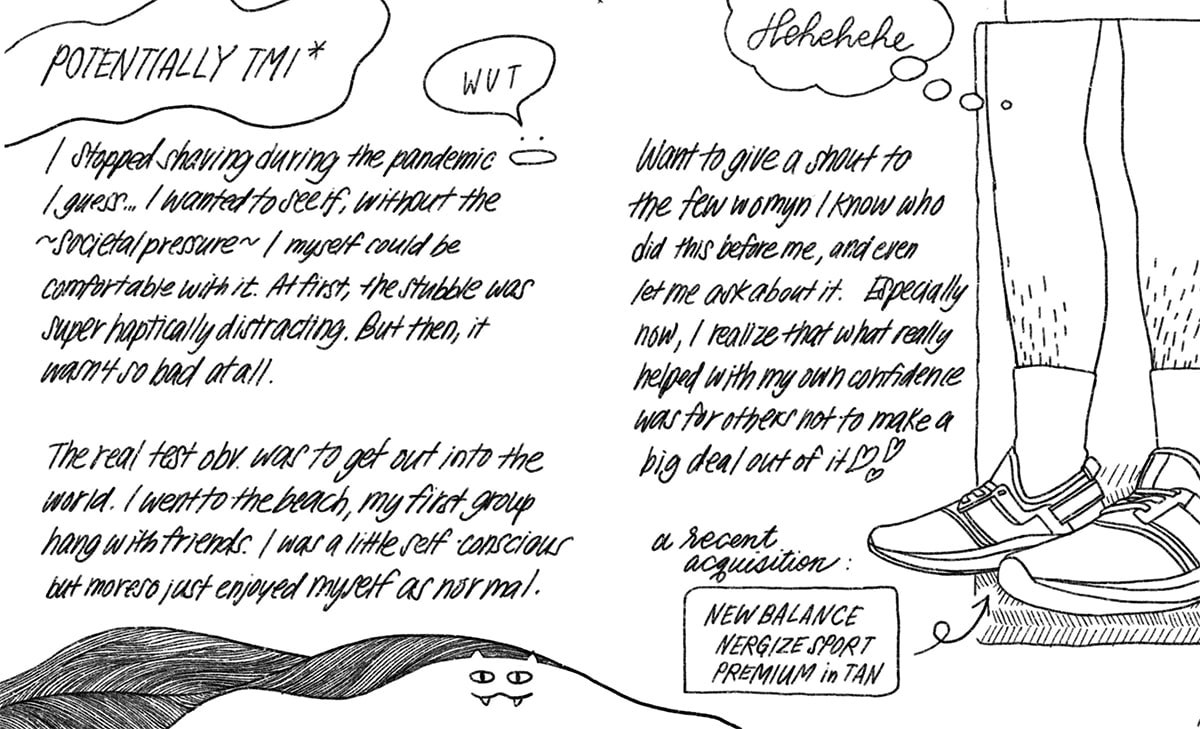 POTENTIALLY TMI*
WUT
I stopped shaving during the pandemic
I guess... I wanted to see if, without the
~societal pressure~ I myself could be
comfortable with it. At first, the stubble was
super haptically distracting. But then, it
wasn't so bad at all.
The real test obv. was to get out into the
world. I went to the beach, my first group
hang with friends. I was a little self-conscious
but moreso just enjoyed myself as normal.
Hehehehe
Want to give a shout to
the few womyn I know who
did this before me, and even
let me ask about it. Especially
now, I realize that what really
helped with my own confidence
was for others not to make a
big deal out of it
a recent
acquisition:
NEW BALANCE
NERGIZE SPORT
PREMIUM in TAN